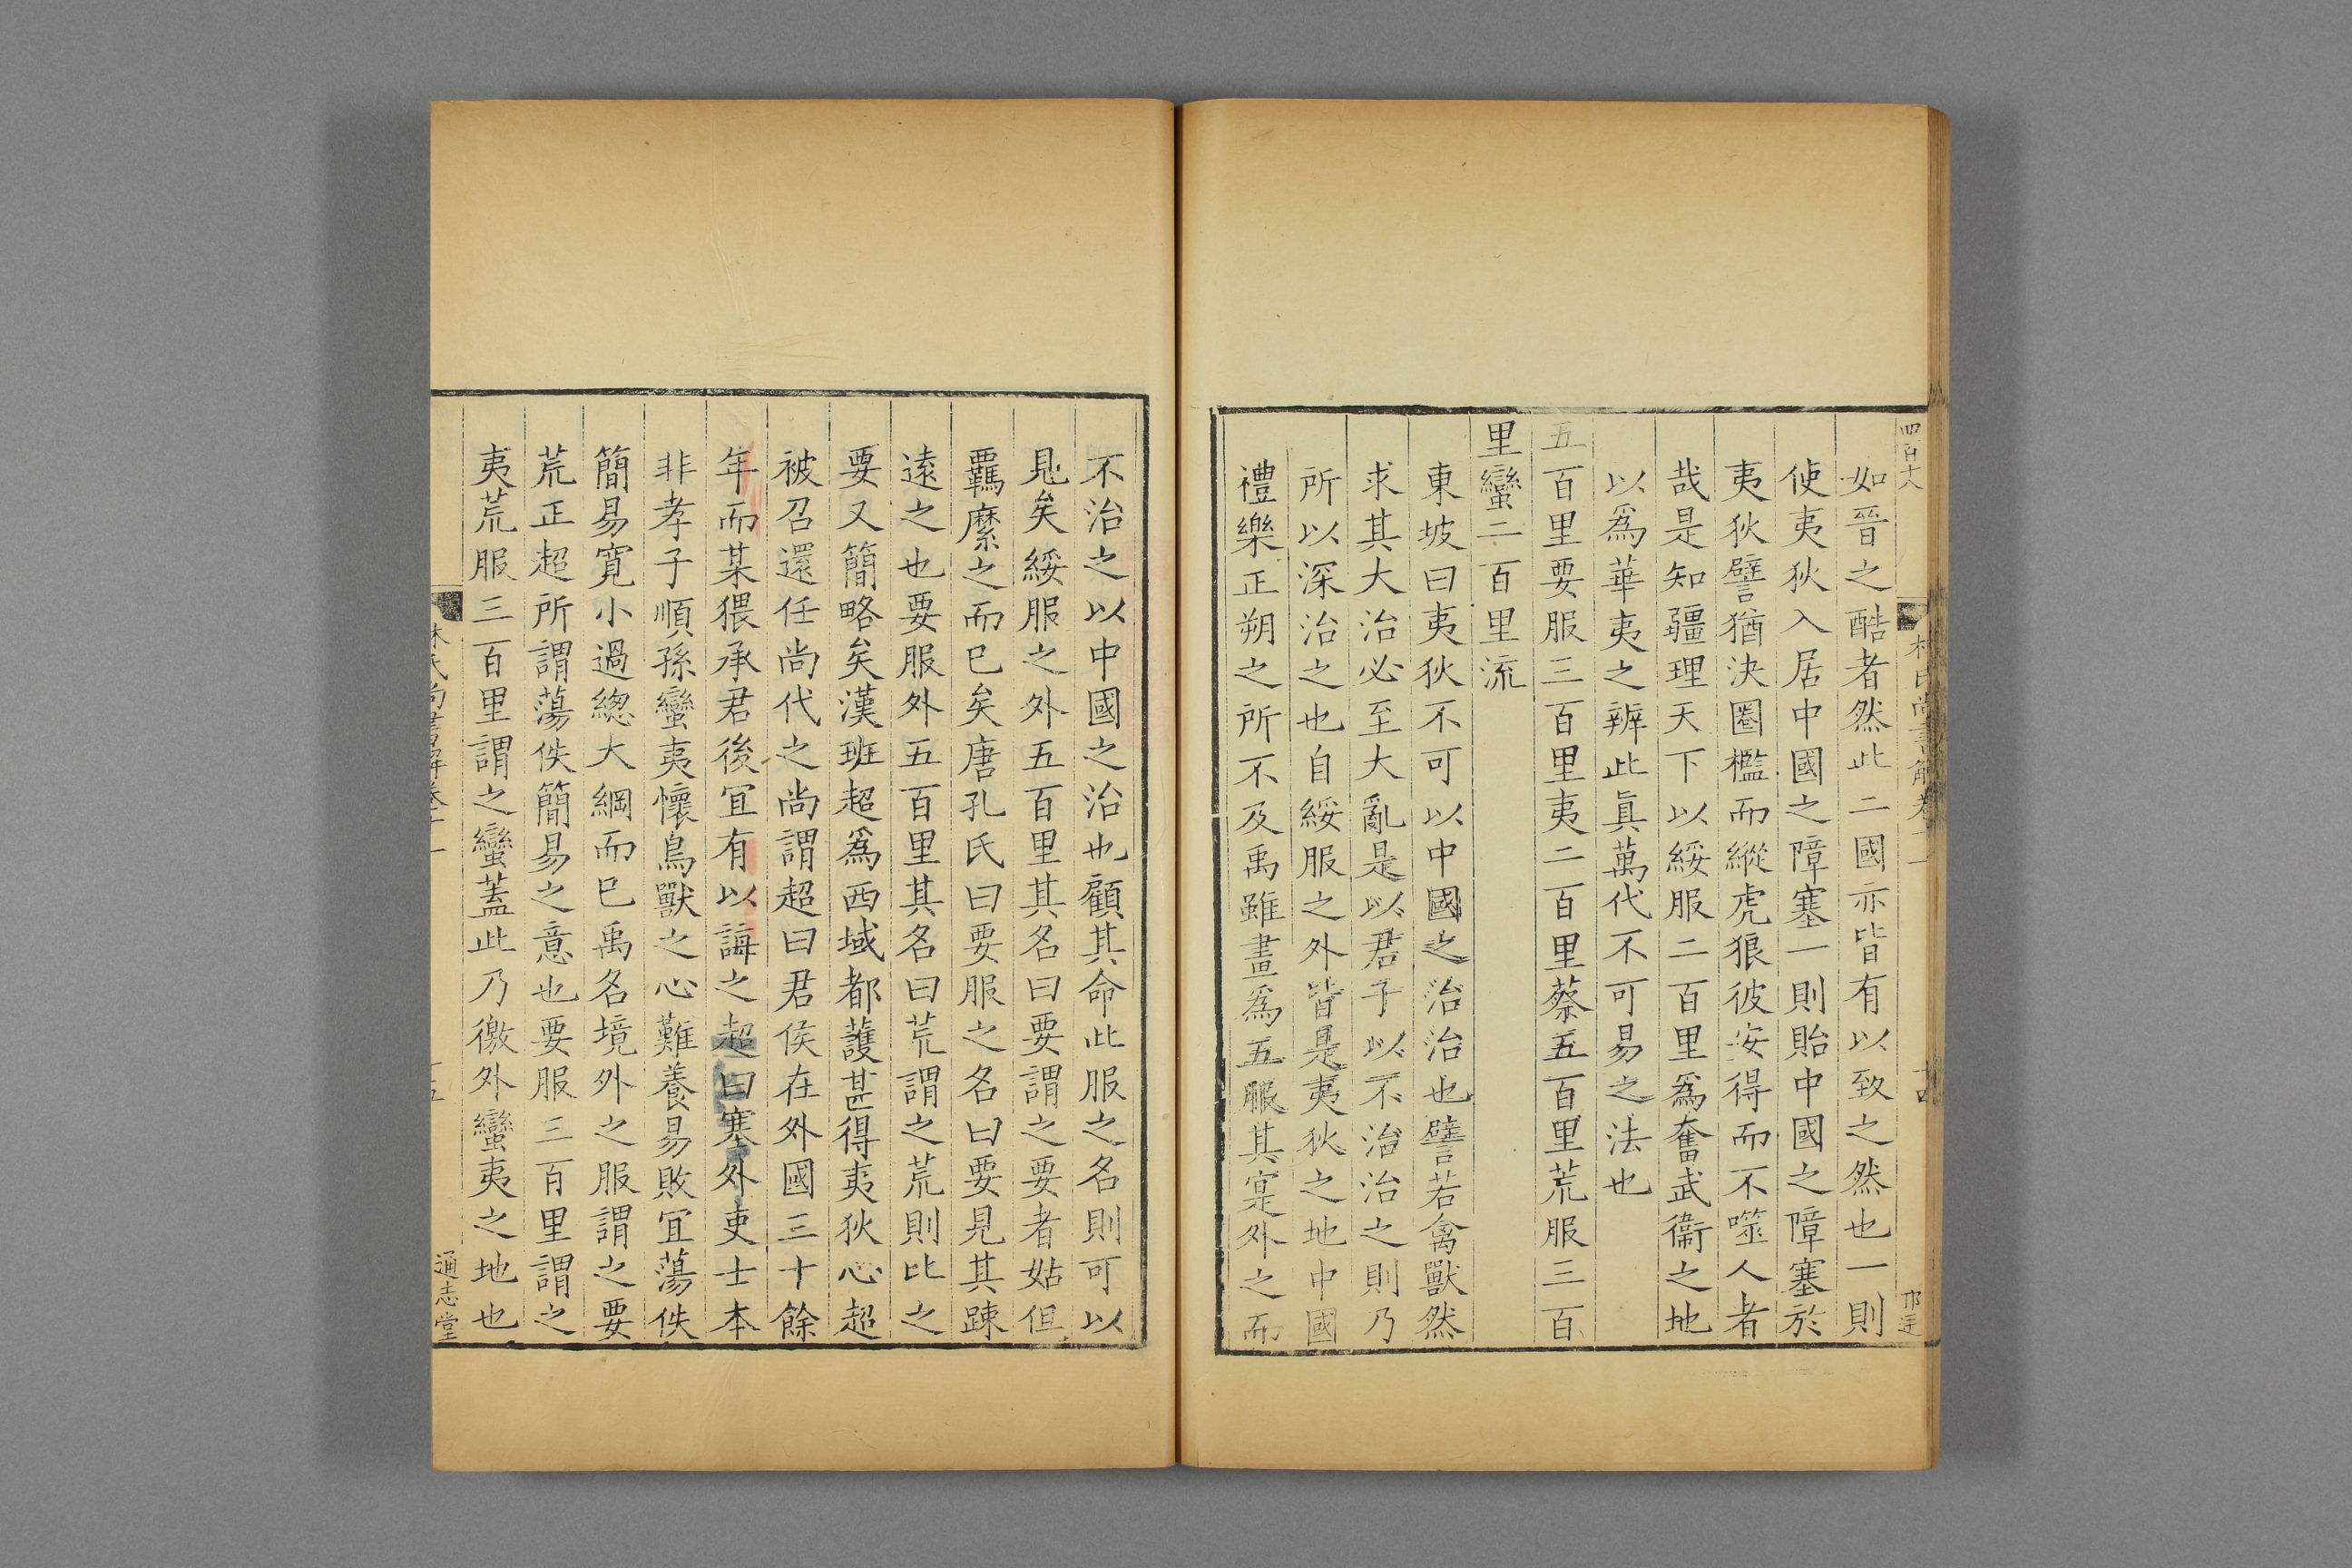 四百十八
林氏尚書解卷十一
十四
如晉之酷者然此二國亦皆有以致之然也一則
使夷狄入居中國之障塞一則貽中國之障塞於
夷狄譬猶決圈檻而縱虎狼彼安得而不噬人者
哉是知疆理天下以綏服二百里爲奮武衞之地
以爲華夷之辨此眞萬代不可易之法也
五百里要服三百里夷二百里蔡五百里荒服三百
里蠻二百里流
東坡曰夷狄不可以中國之治治也譬若禽獸然
求其大治必至大亂是以君子以不治治之則乃
所以深治之也自綏服之外皆是夷狄之地中國
禮樂正朔之所不及禹雖畫爲五服其寔外之而
不治之以中國之治也顧其命此服之名則可以
見矣綏服之外五百里其名曰要謂之要者姑但
羈縻之而已矣唐孔氏曰要服之名曰要見其踈
遠之也要服外五百里其名曰荒謂之荒則比之
要又簡略矣漢班超爲西域都護甚得夷狄心超
被召還任尚代之尚謂超曰君侯在外國三十餘
年而某猥承君後宜有以誨之超曰塞外吏士本
非孝子順孫蠻夷懷鳥獸之心難養易敗宜蕩佚
簡易寛小過緫大綱而已禹名境外之服謂之要
荒正超所謂蕩佚簡易之意也要服三百里謂之
夷荒服三百里謂之蠻蓋此乃徼外蠻夷之地也
林氏尚書解卷十一
十五
通志堂